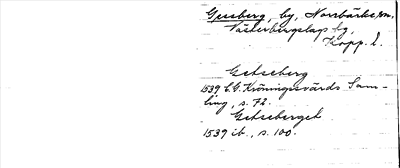 Gessberg, by, Norrbärke sn,
Västerbergslags fg,
Kopp. l.
Getseberg
1539 C.G. Kröningsvärds Sam-
ling, s. 72.
Getseberget
1539 ib., s. 100.